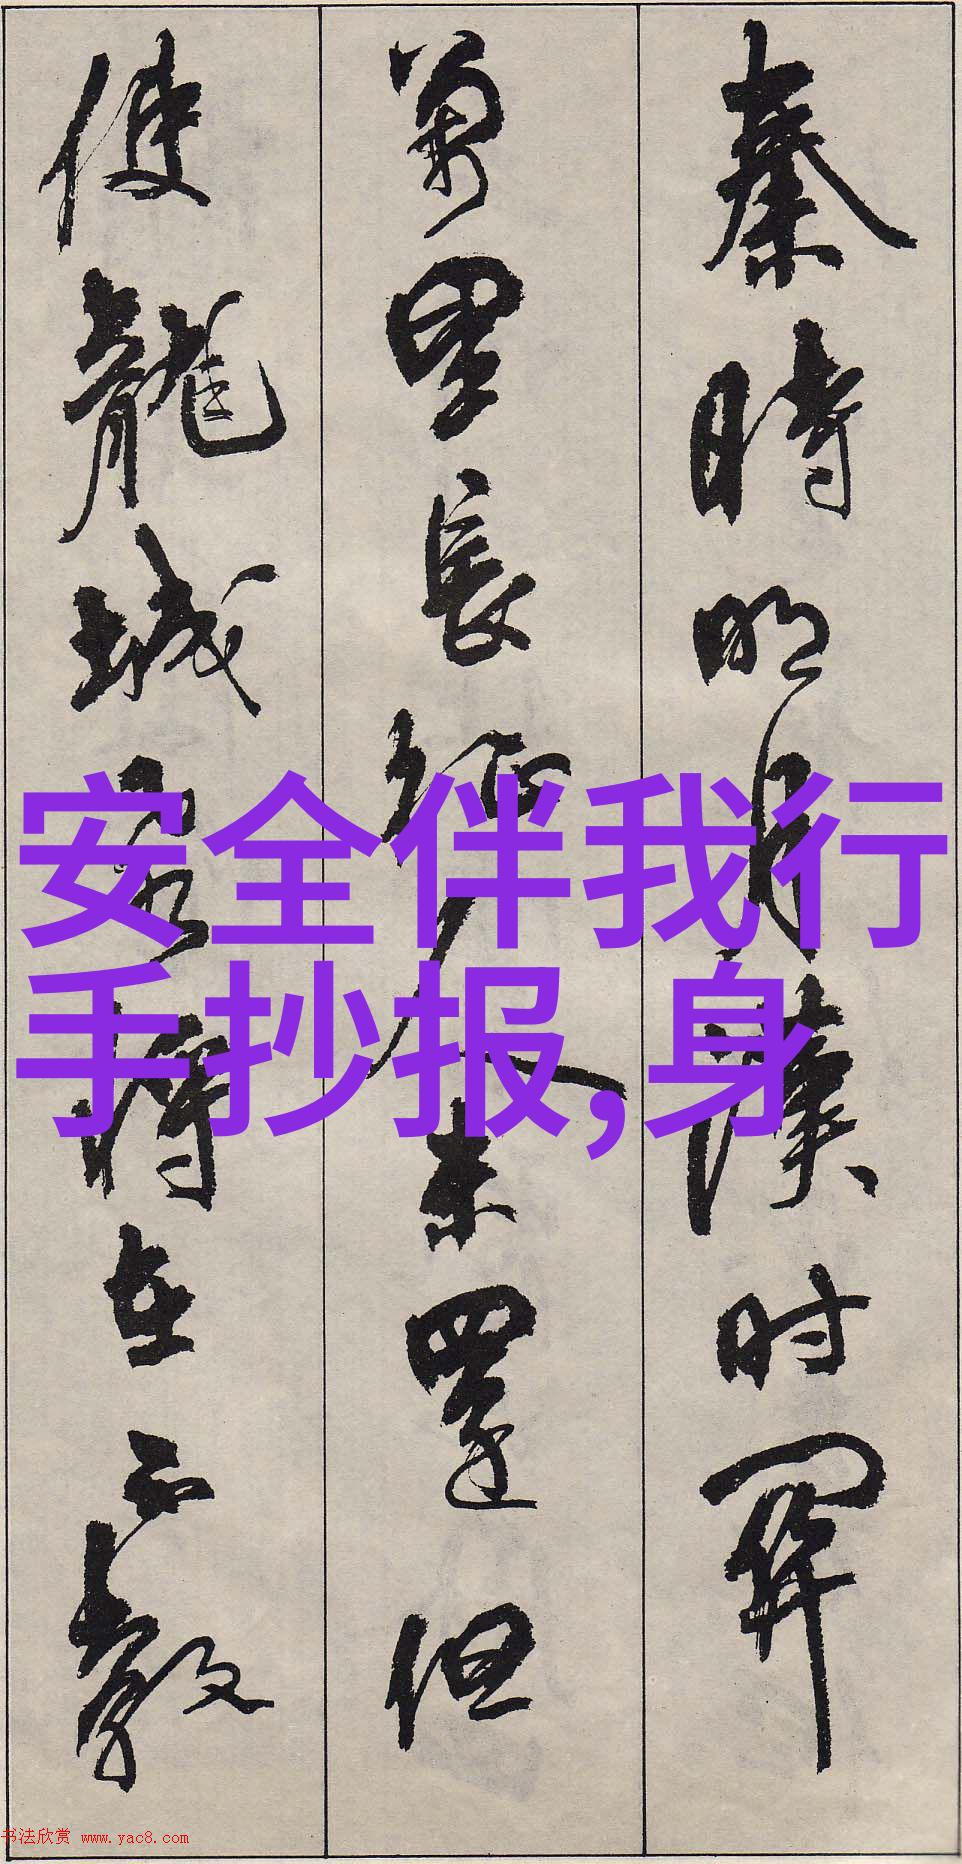 秦時明月漢时関
萬里長征人未還但
使龍城飛將在不教
安全伴我行
手抄报,身
书法欣赏 www.yac8.com